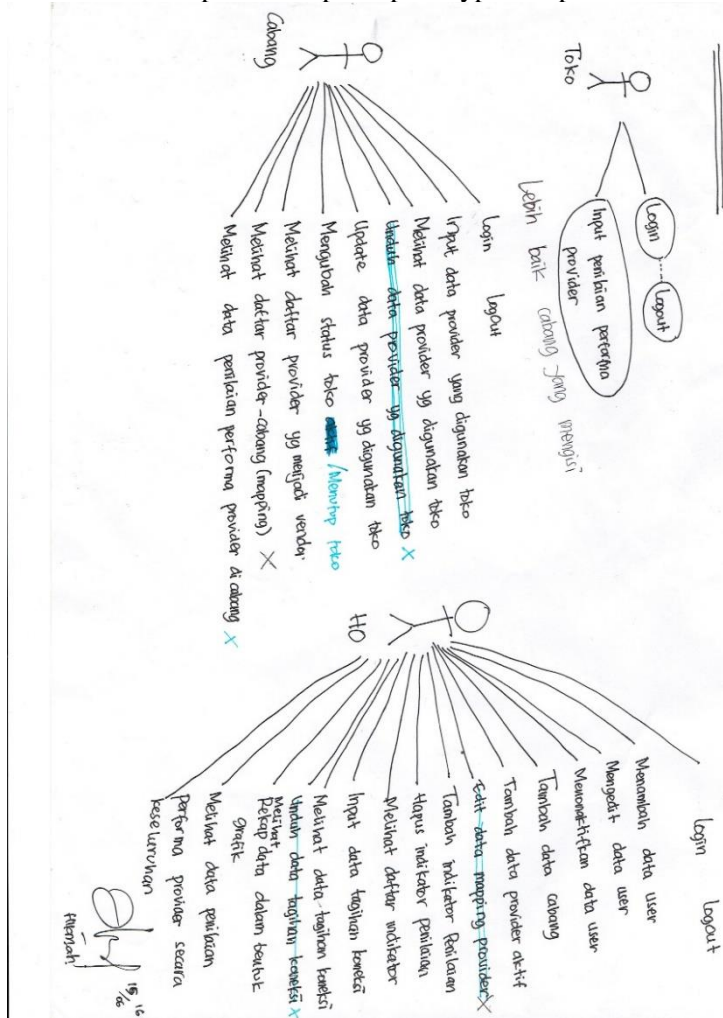 Toko
Login
Logout
Input penilaian performa
provider
Lebih baik cabang yang mengisi
Cabang
Login Logout
Input data provider yang digunakan toko
Melihat data provider yg digunakan toko
Unduh data provider yg digunakan toko X
Update data provider yg digunakan toko
Mengubah status toko /Menutup toko
Melihat daftar provider yg menjadi vendor
Melihat daftar provider-cabang (mapping) X
Melihat data penilaian performa provider di cabang X
HO
Login Logout
Menambah data user
Mengedit data user
Menonaktifkan data user
Tambah data cabang
Tambah data provider aktif
Edit data mapping provider X
Tambah indikator Penilaian
Hapus indikator penilaian
Melihat daftar indikator
Input data tagihan koneksi
Melihat data tagihan koneksi
Unduh data tagihan koneksi X
Melihat
Rekap data dalam bentuk
grafik
Melihat data penilaian
performa provider secara
keseluruhan
15/06 16